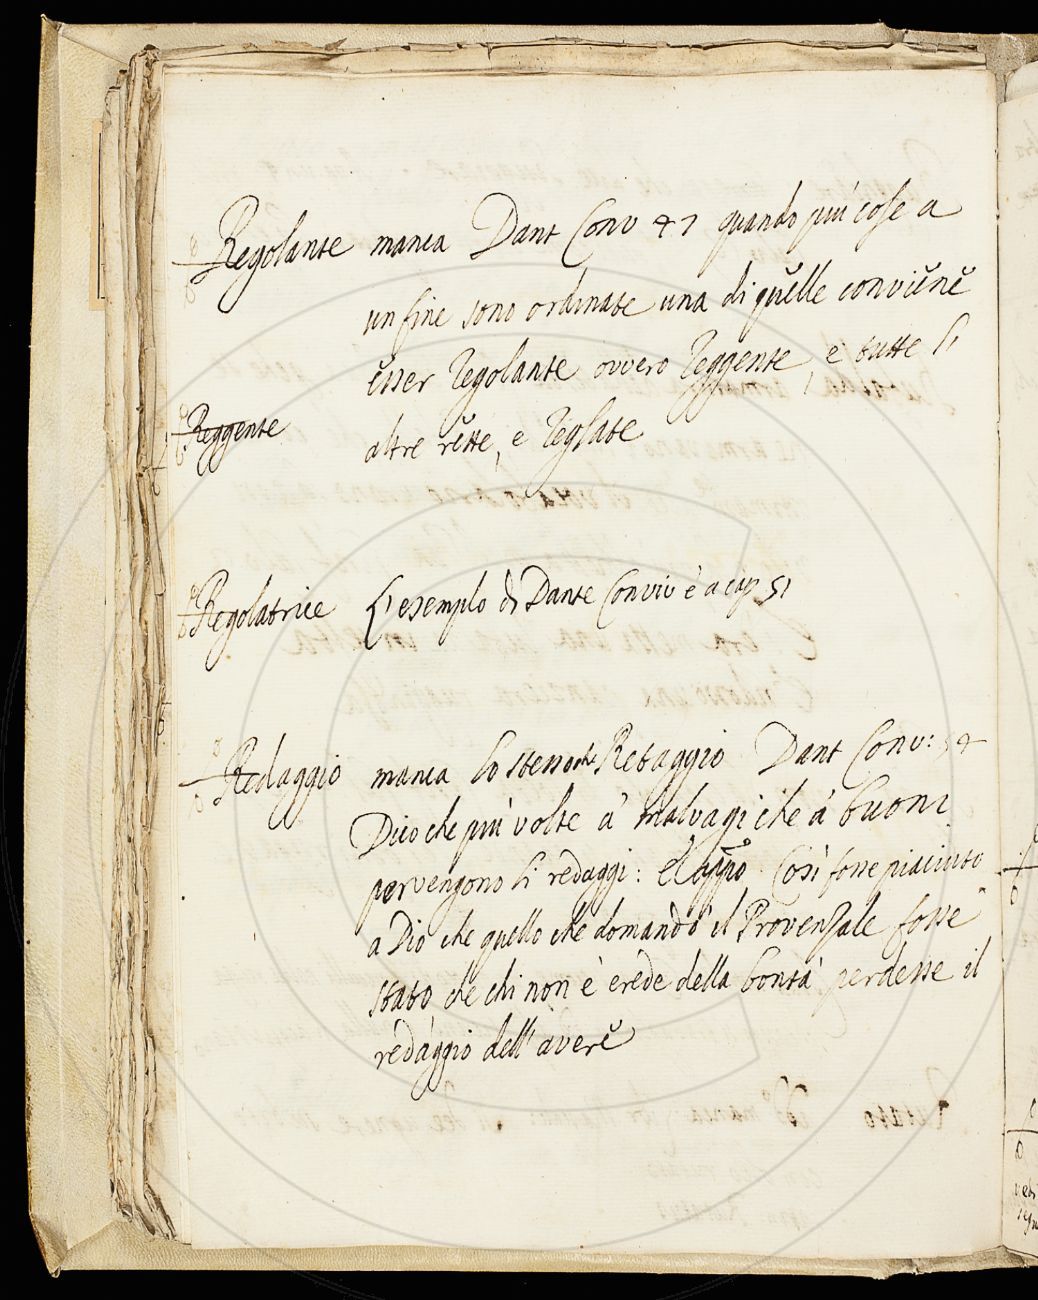 Regolante manca Dant Conv 47 quando più cose a
un fine sono ordinate una di quelle conviene
esser regolante ovvero reggente, e tutte l'
altre rette, e reglate
Reggente
Regolatrice L'esemplo di Dante Conviv è a cap 51
Redaggio manca lo stesso che Retaggio Dant Conv: 54
Dico che più volte a' malvagi che a' buoni
pervengono li redaggi: e Così fosse piaciuto
a Dio che quello che domandò il Provenzale fosse
stato che chi non è erede della bontà perdesse il
redaggio dell'avere